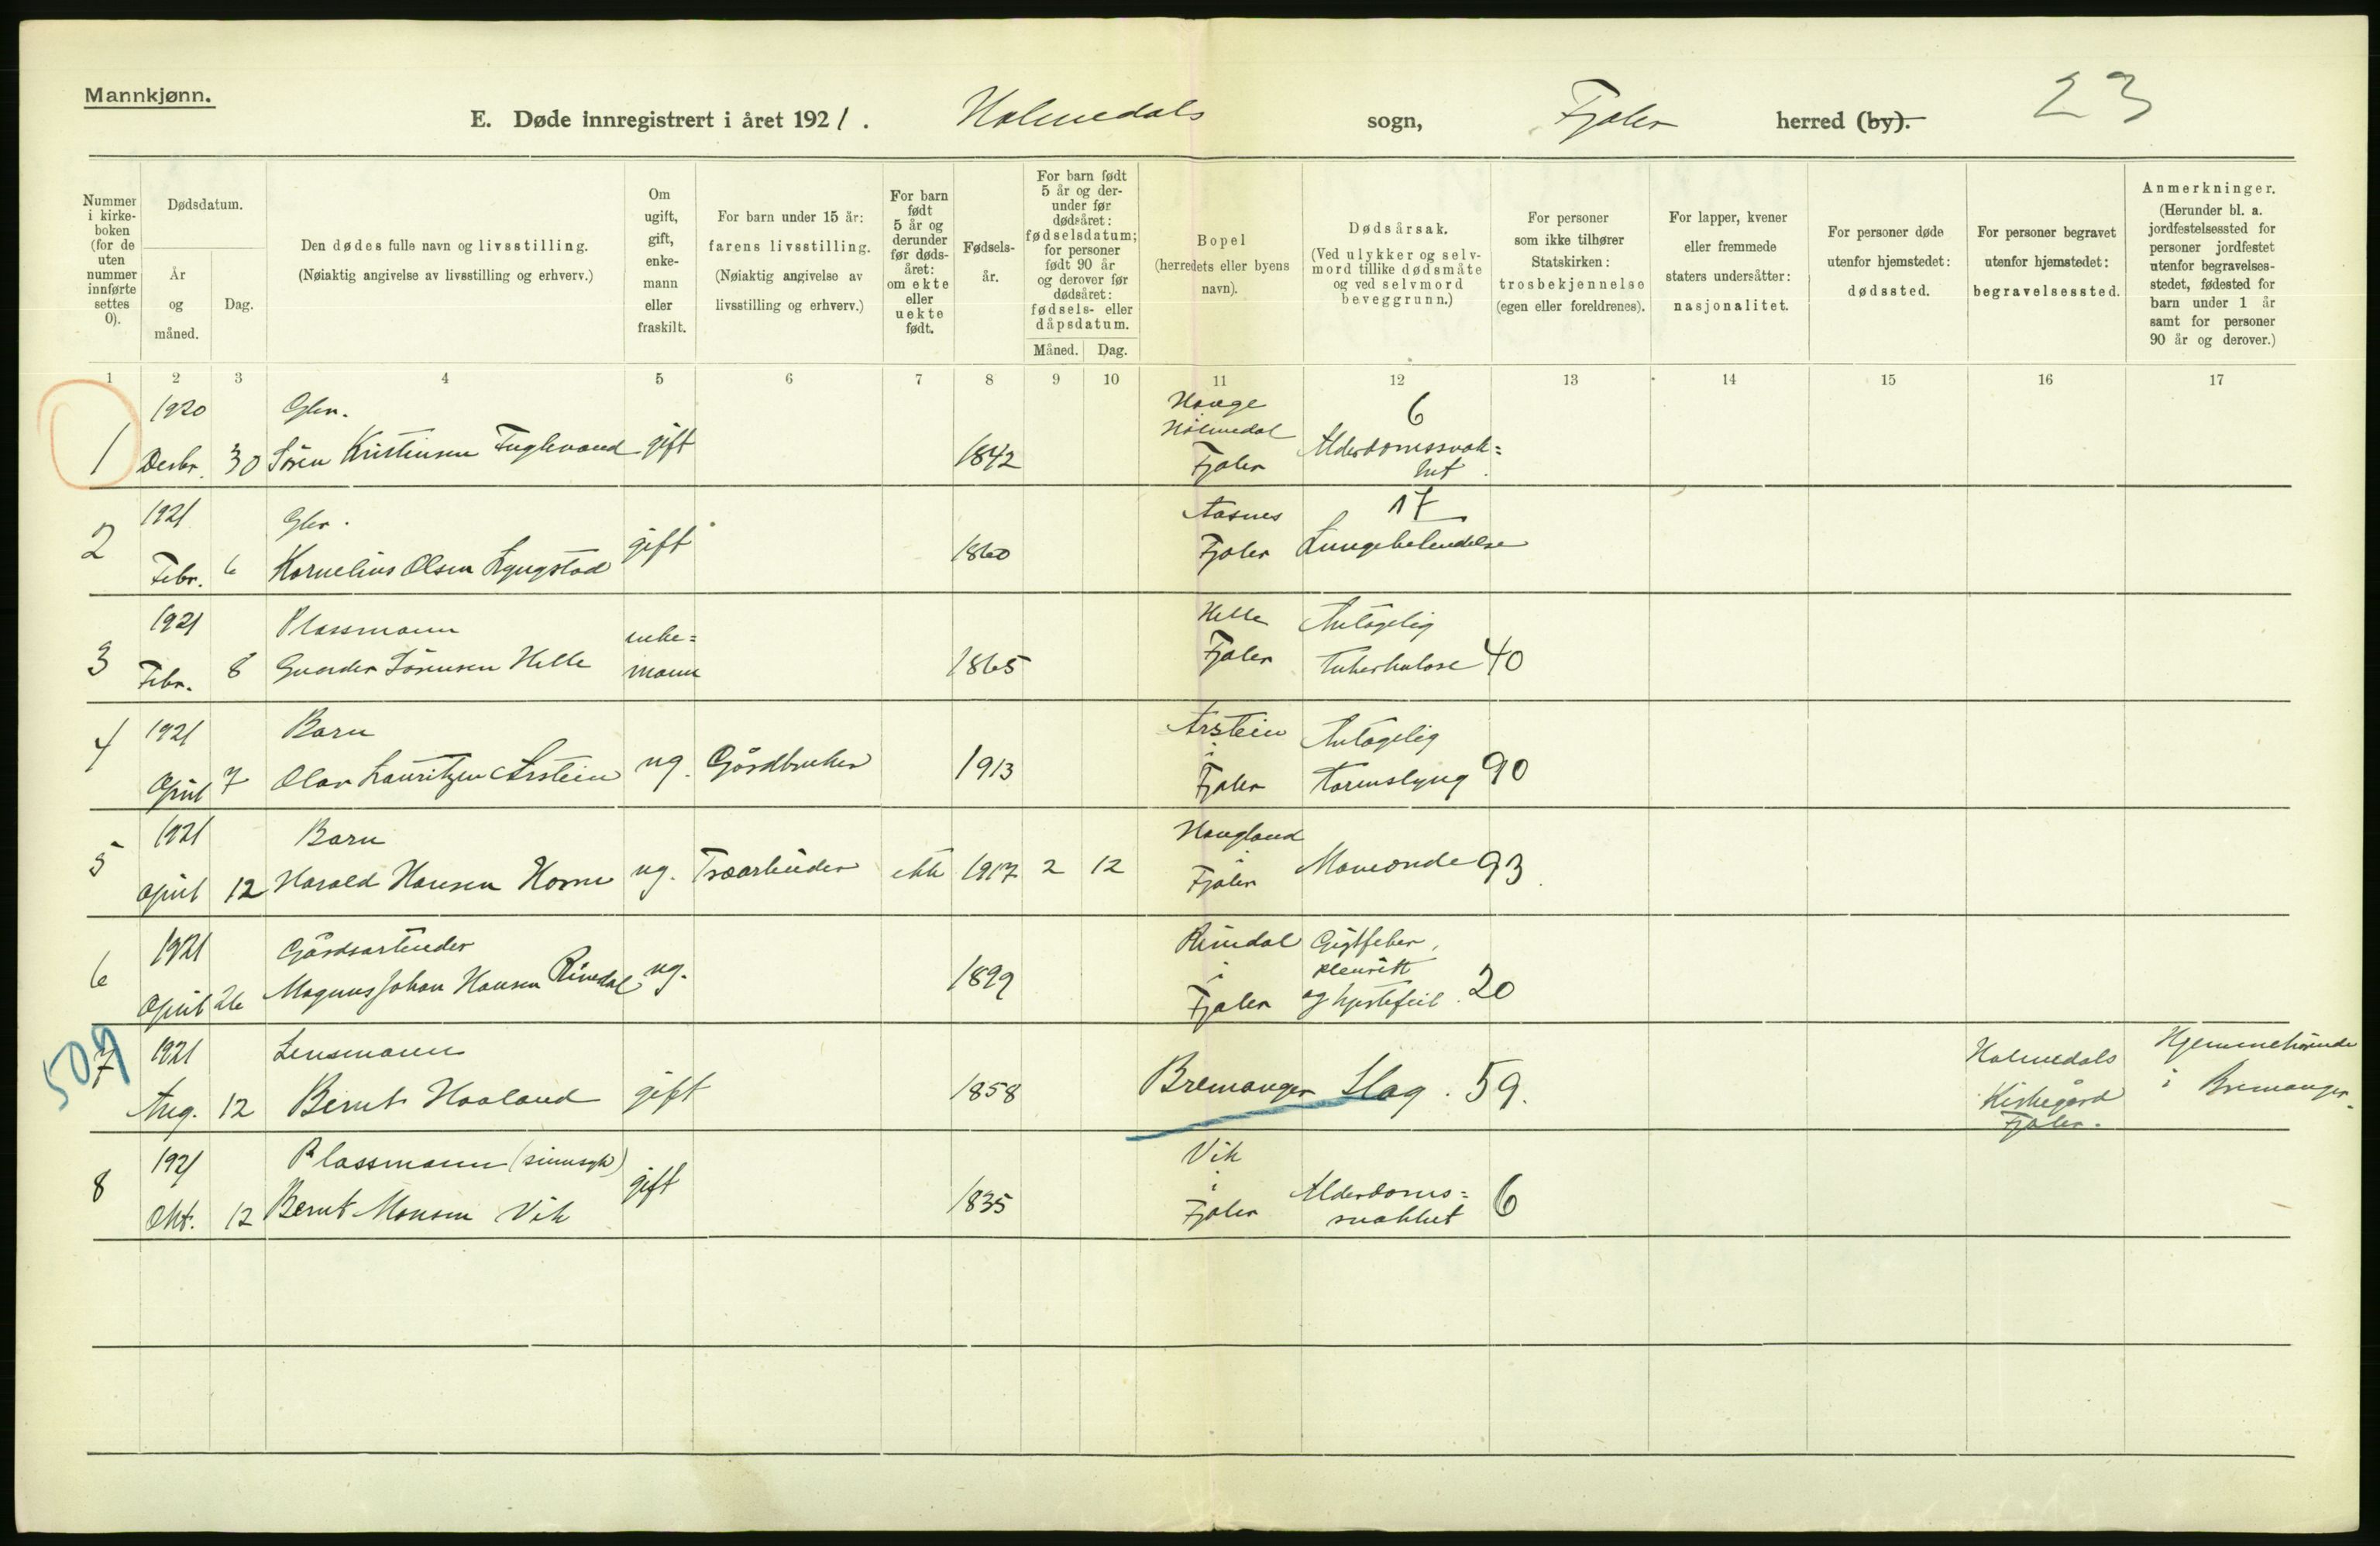 Mannkjønn.
E. Døde innregistrert i året 1921. Holmedals sogn, Fjaler herred (by). 23
Nummer i kirke-boken (for de uten nummer innførte settes 0).
Dødsdatum.
År og måned.
Dag.
Den dødes fulle navn og livsstilling.
(Nøiaktig angivelse av livsstilling og erhverv.)
Om ugift, gift, enke-mann eller fraskilt.
For barn under 15 år:
farens livsstilling.
(Nøiaktig angivelse av livsstilling og erhverv.)
For barn født 5 år og derunder før døds-året: om ekte eller uekte født.
Fødsels-år.
For barn født 5 år og der-under før dødsåret: fødselsdatum; for personer født 90 år og derover før dødsåret: fødsels- eller dåpsdatum.
Måned. Dag.
Bopel
(herredets eller byens navn).
Dødsårsak.
(Ved ulykker og selv-mord tillike dødsmåte og ved selvmord beveggrunn.)
For personer som ikke tilhører Statskirken:
trosbekjennelse
(egen eller foreldrenes).
For lapper, kvener eller fremmede staters undersåtter:
nasjonalitet.
For personer døde utenfor hjemstedet:
dødssted.
For personer begravet utenfor hjemstedet:
begravelsessted.
Anmerkninger.
(Herunder bl. a. jordfestelsessted for personer jordfestet utenfor begravelses-stedet, fødested for barn under 1 år samt for personer 90 år og derover.)
1 2 3 4 5 6 7 8 9 10 11 12 13 14 15 16 17
1920 Gbr. Hauge 6
Holmedal
1 Desbr. 30 Søren Kristensen Fuglevand gift 1842 Fjaler Alderdomssvak=
het.
1921 Gbr. Aasnes 17
2 Febr. 6 Kornelius Olsen Lyngstad gift 1860 Fjaler Lungebetendelse
1921 Plassmann enke= Helle Antagelig
3 Febr. 8 Gunder Sørensen Helle mann 1865 Fjaler tuberkulose 40
4 1921 Barn Arstein Antagelig
i
April 7 Olav Lauritzen Arstein ug. Gårdbruker 1913 Fjaler tarmslyng 90
1921 Barn Haugland
i
5 April 12 Harald Hansen Horne ug. Træarbeider ekte 1917 2 12 Fjaler Maveonde 93
1921 Gårdsarbeider Rinedal Gigtfeber,
i pleuritt
6 April 26 Magnus Johan Hansen Rinedal ug. 1899 Fjaler og hjertefeil. 20
509
7 1921 Lensmann Holmedals Hjemmehørende
Aug. 12 Bernt Haaland gift 1858 Bremanger Slag. 59. Kirkegård i Bremanger.
Fjaler.
1921 Plassmann (sinnsyk) Vik
i
8 Okt. 12 Bernt Monsen Vik gift 1835 Fjaler Alderdoms= 6
svakhet